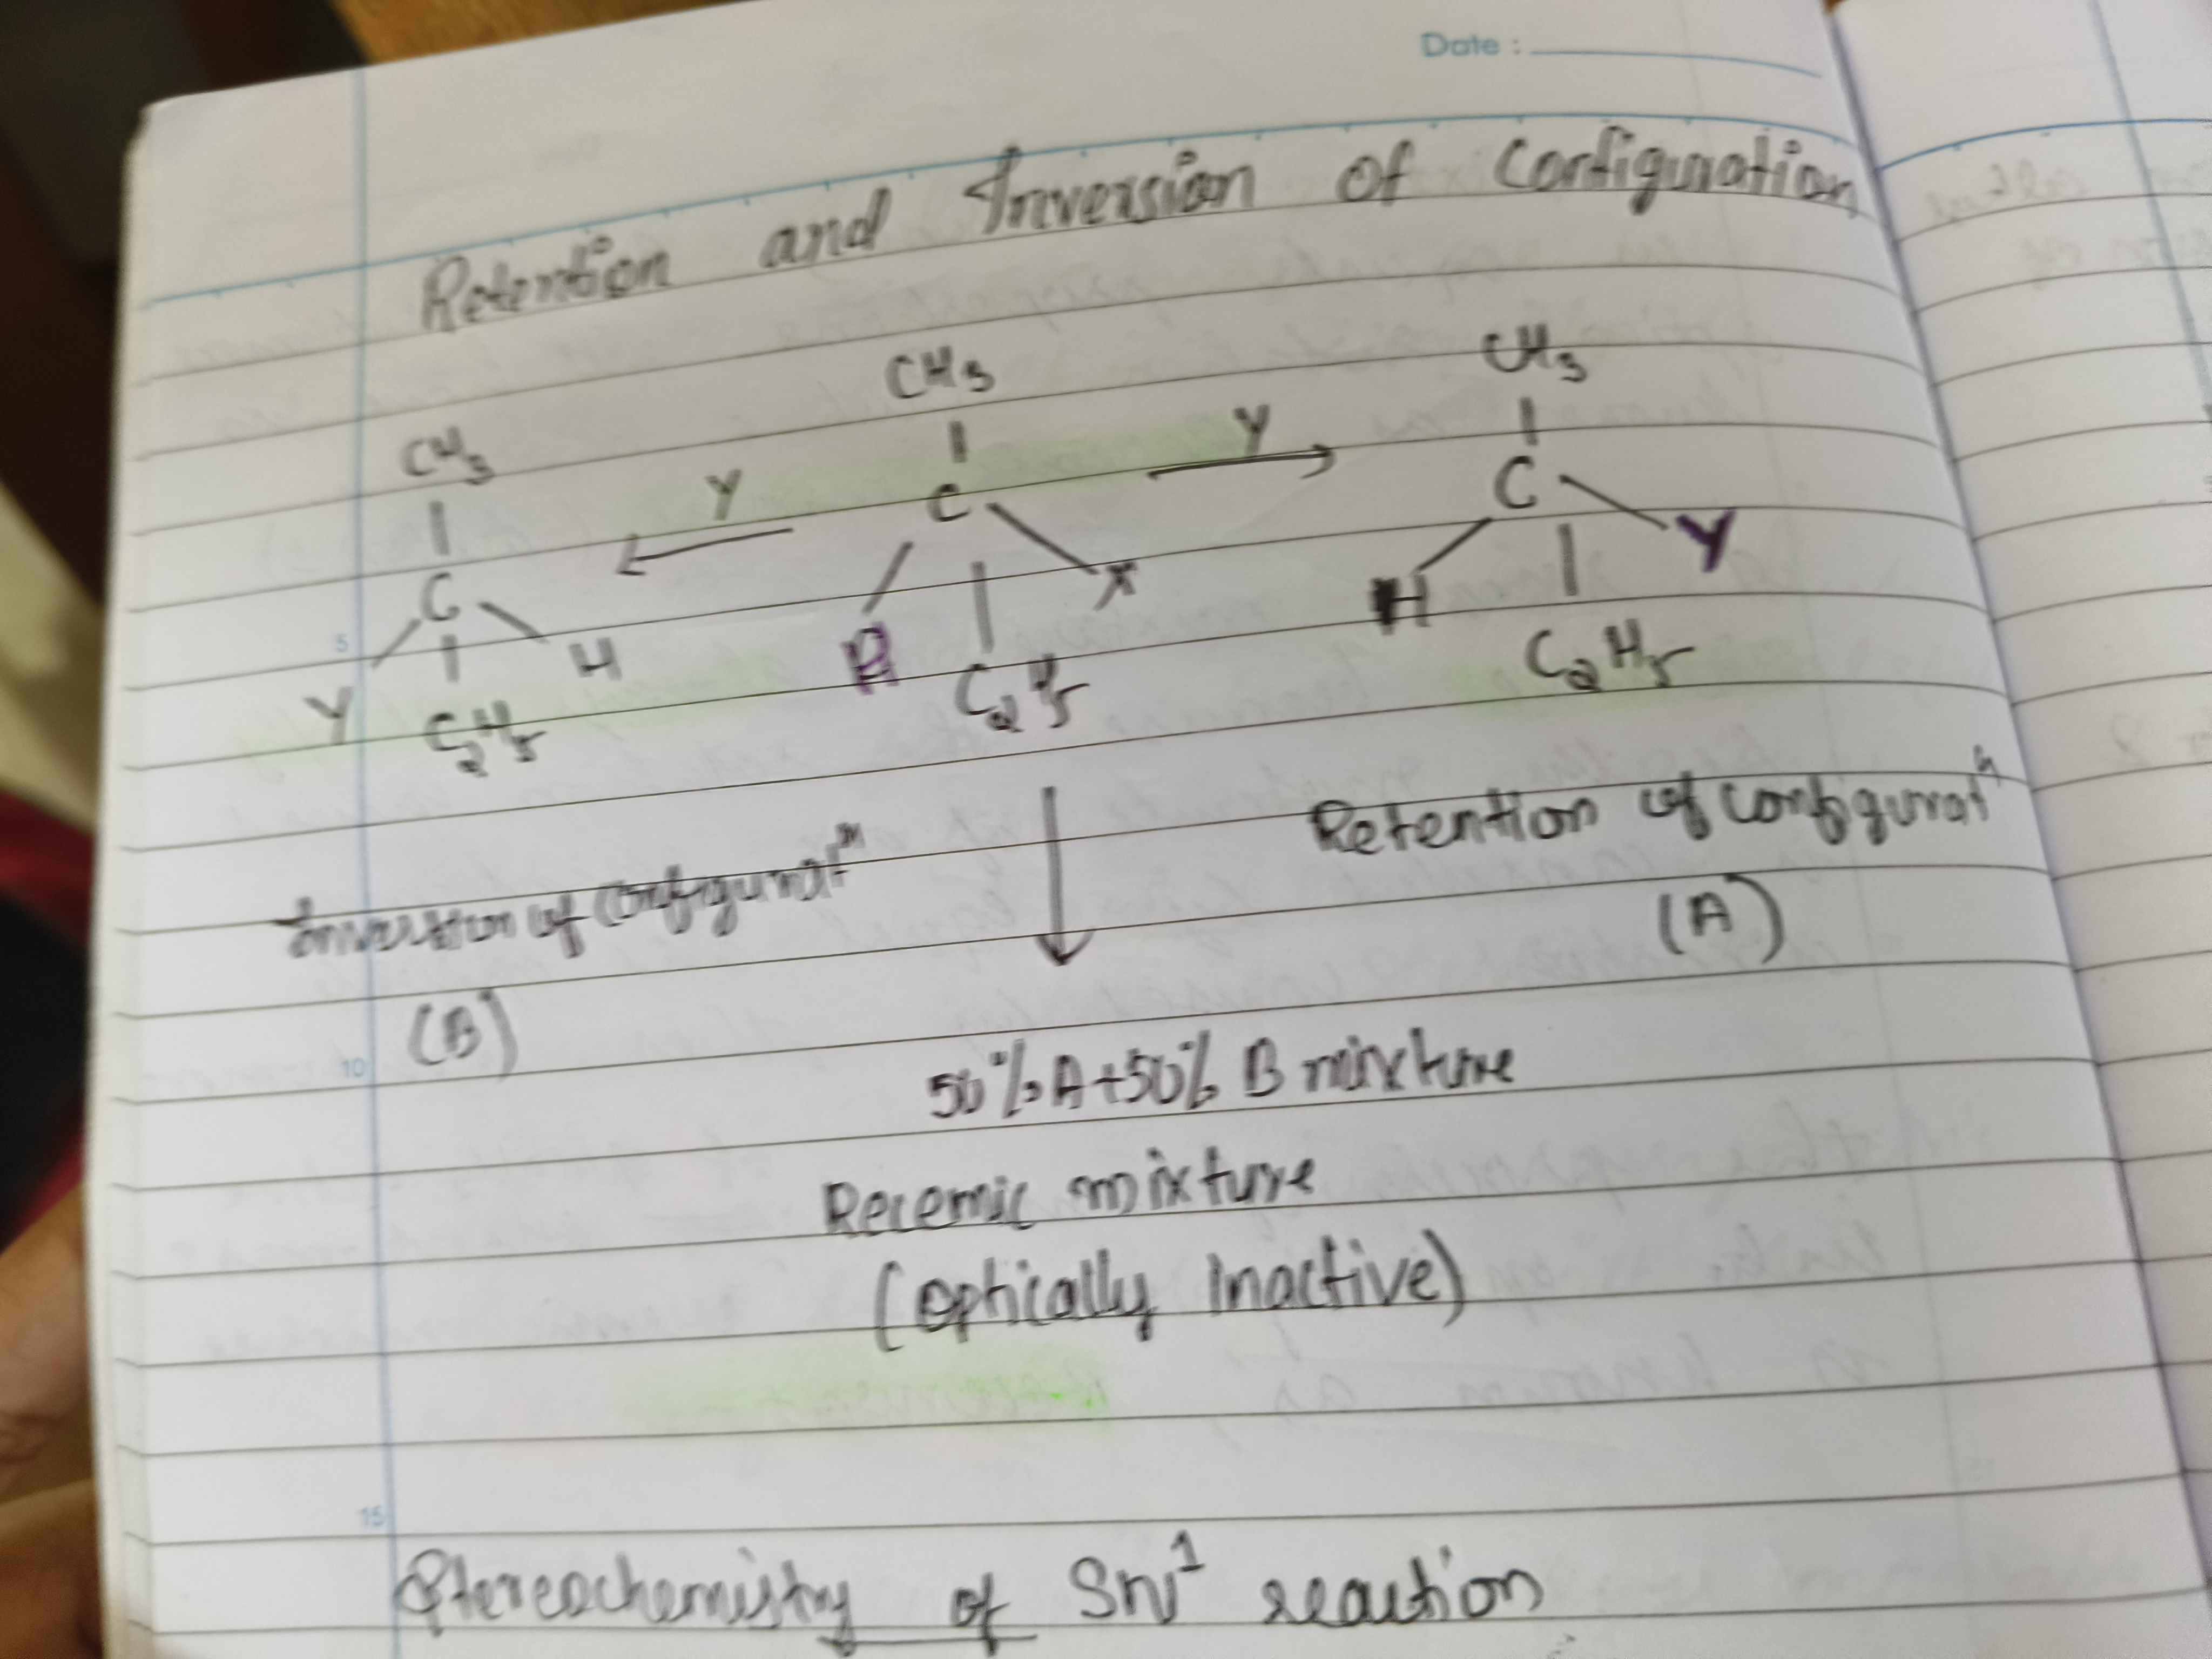 Date :
Retention and Inversion of Configuration
CH3 CH3 CH3
Y Y
C C C
Y H H X H Y
C2H5 C2H5 C2H5
5
Inversion of Configuratn Retention of Configuratn
(B) (A)
10
50% A+50% B mixture
Recemic mixture
(Optically Inactive)
15
Stereochemistry of SN1 reaction